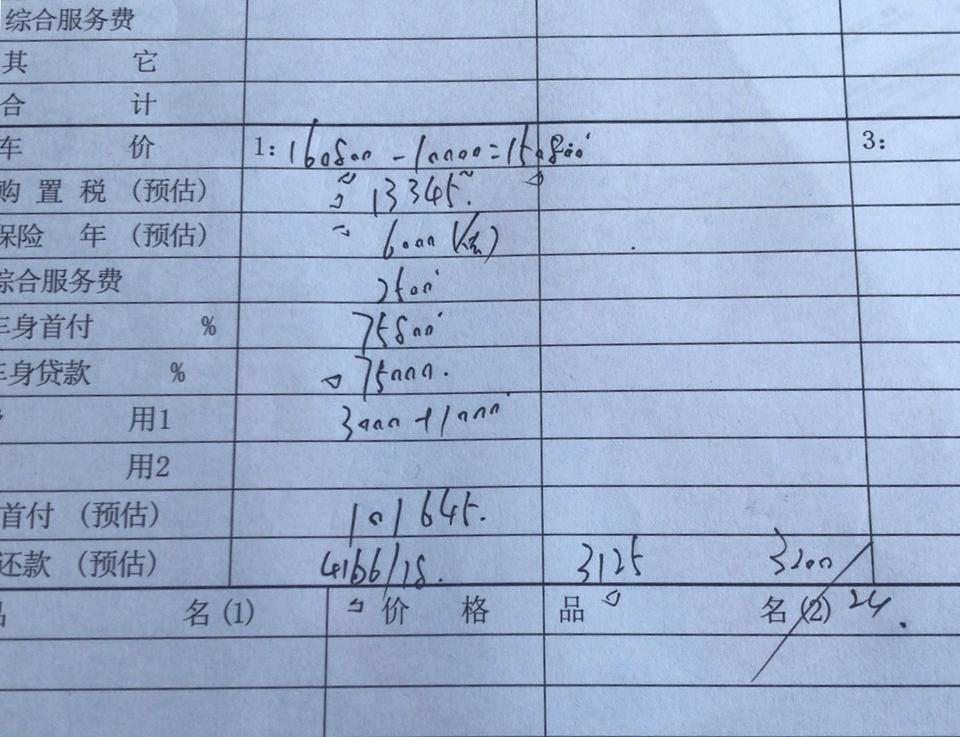 综合服务费
其 它
合 计
车 价 1: 160800 - 10000 = 150800 3:
购 置 税 (预估) 13345.
保险 年 (预估) 6000
综合服务费 2500
车身首付 % 75800
车身贷款 % 75000.
用1 3000 + 1000
用2
首付 (预估) 101645.
还款 (预估) 4166/18. 3125 3200
名(1) 价 格 品 名(2) 24.